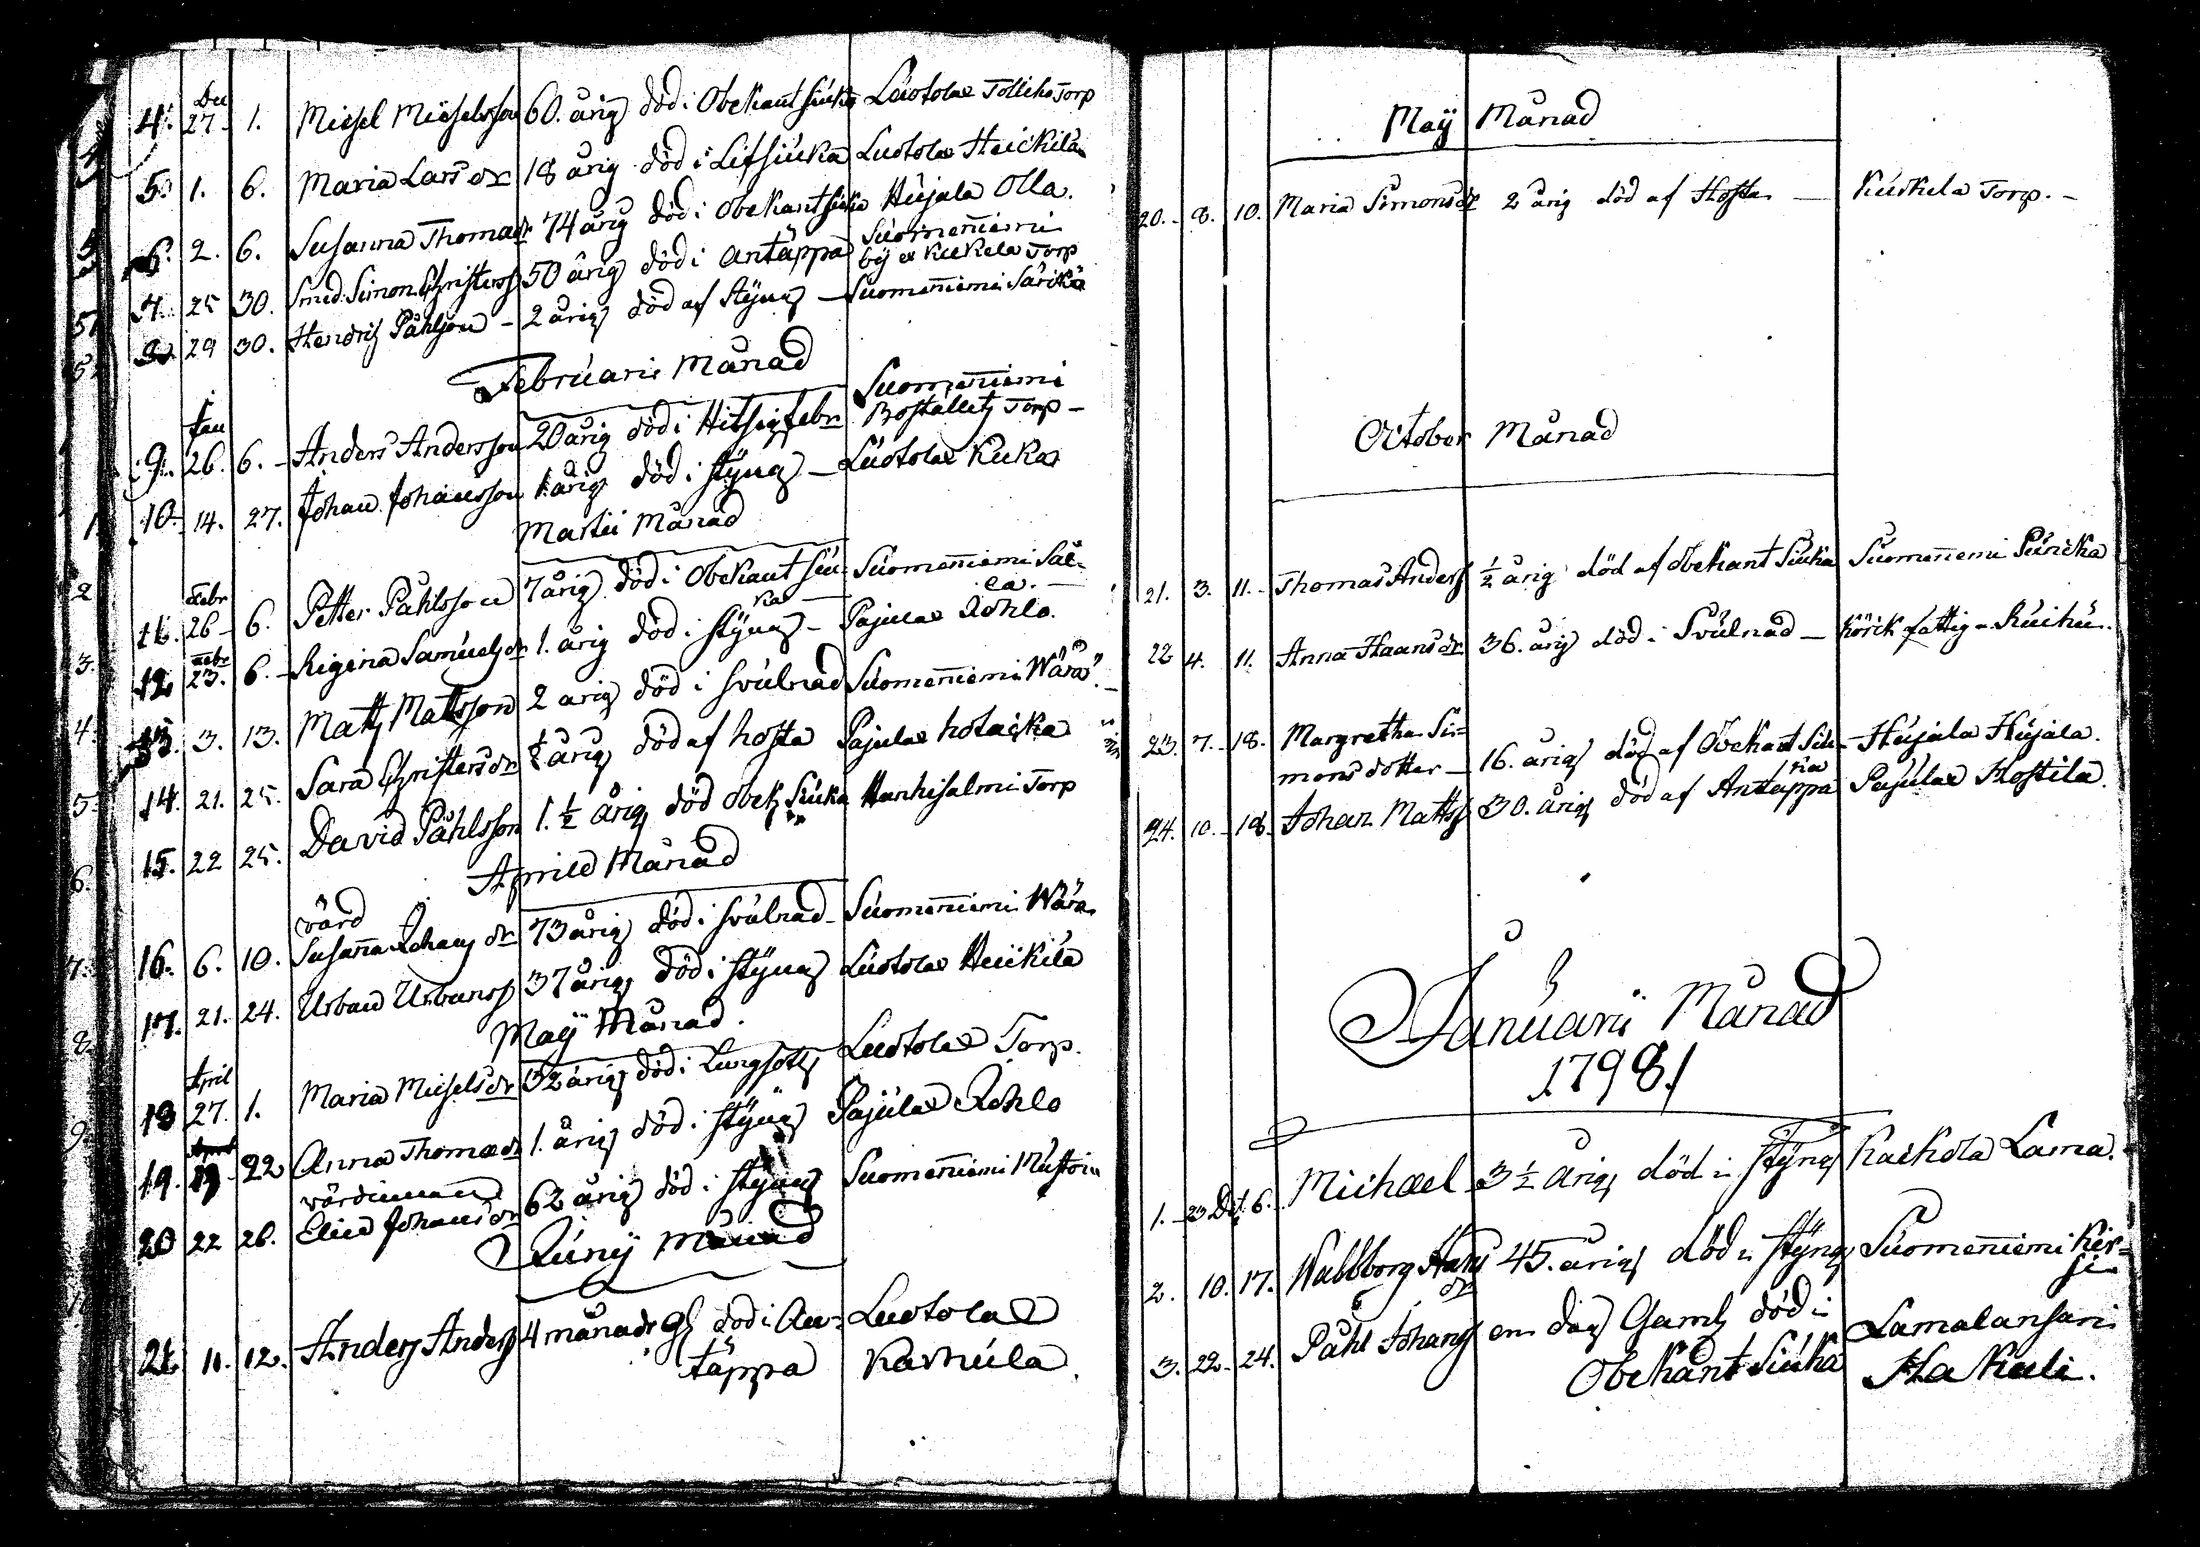 Dec
4. 27 - 1. Michel Michelsson 60. årig död i Obekant siuka Luotola Tollika Torp
5. 1. 6. Maria Lars dr 18 årig död i Lefsiuka Luotola Heickilä
6. 2. 6. Susanna Thomædr 74 årig död i obekant siuka Hujala Olla.
7. 25 30. Smed Simon Christerss 50 årig död i antäppa Suomenniemi by a Kukela Torp
8. 29 30. Hendrich Påhlsson - 2 årig död af styng - Suomenniemi Särckä
Februarii Månad
Jan
9. 26. 6. - Anders Andersson 20 årig död i Hitsig febr Suomenniemi Boställetz Torp -
10. 14. 27. Johan Johansson 1 årig död i styng - Luotola Kuka
Martii Månad
Febr
11. 26 - 6. Petter Påhlsson 7 årig död i Obekant siuka Suomenniemi
Febr
12. 23. 6. - Regina Samuels dr 1. årig död i styng - Pajula Rohlo.
13. 3. 13. Matts Mattsson 2 årig död i svulnad Suomenniemi Wärä.
14. 21. 25. Sara Christers dr ½ årig död af hosta Pajula
15. 22 25. David Påhlsson 1. ½ årig död obek. Siuka Hanhisalmi Torp
Aprill Månad
värd
16. 6. 10. Susanna Johans dr 73 årig död i svulnad - Suomenniemi Wärä
17. 21. 24. Urban Urbanss 37 årig död i styng Luotola Heickilä
May Månad.
April
18 27. 1. Maria Michels dr 32 årig död i Lungsott Luotola Torp.
19. 19 - 22 Anna Thomædr 1. årig död i styng Pajula Rohlo
värdinnan
20 22 26. Elin Johans dr 62 årig död i styng Suomenniemi Mustoin
Junij Månad
21 11. 12. Anders Anderss 4 månadr gl död i An-
täppa Luotola
Kakula.
May Månad
20. - 8. 10. Maria Simons dr 2 årig död af Hosta - Kuukela Torp. -
October Månad
21. 3. 11. - Thomas Anderss ½ årig död af obekant Siuka Suomenniemi
22 4. 11. Anna Haans dr 36. årig död i Svulnad - Körck fattig
23. 7. - 18. Margretha Si=
mons dotter - 16. årig död af Obekant Siu-
ka - Hujala Hujala.
24. 10. - 18. Johan Mattss 30. årig död af Antäppa Pajula Kostila.
Januarii Månad
1798.
1. - 23 Det. 6. - Michael 3 ½ årig död i styng Kaikola Lama.
2. 10. 17. Wallborg Hans
dr 45. årig död i styng Suomenniemi Kir=
si
3. 22 - 24. Påhl Johanss en dag Gaml död i
Obekant Siuka Lamalansari
Hakuli.